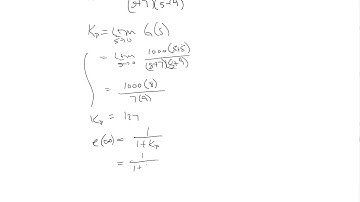 (s+7)(s+9)
Kp = lim s→0 G(s)
= lim s→0 1000(s+8) / (s+7)(s+9)
= 1000(8) / 7(9)
Kp = 127
e(∞) = 1 / 1+Kp
= 1 / 1+